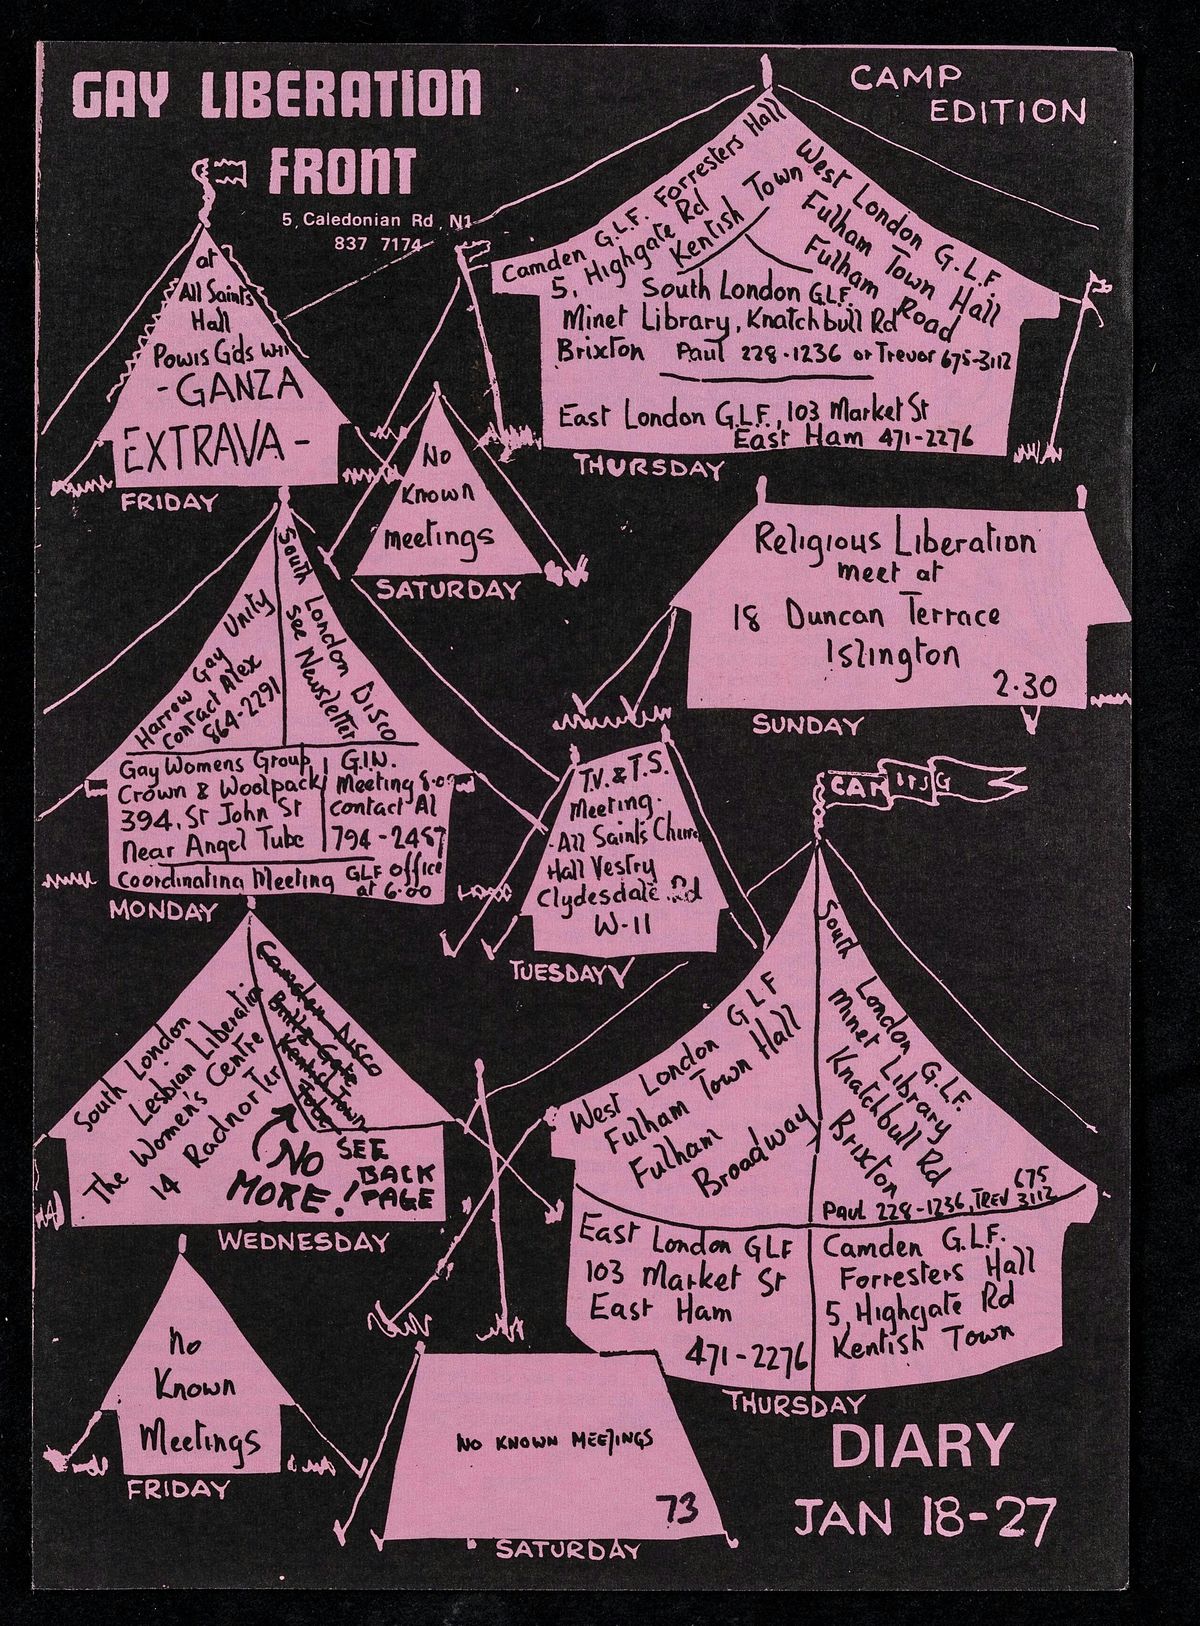 GAY LIBERATION
FRONT
5, Caledonian Rd, N1
837 7174
CAMP
EDITION
Camden G.L.F. Forresters Hall
5, Highgate Rd
Kentish Town
West London G.L.F
Fulham Town Hall
Fulham Road
South London GLF.
Minet Library, Knatchbull Rd
Brixton Paul 228-1236 or Trevor 675-3112
East London G.L.F., 103 Market St
East Ham 471-2276
THURSDAY
at
All Saints
Hall
Powis G'ds W11
- GANZA
EXTRAVA -
FRIDAY
No
Known
meetings
SATURDAY
Religious Liberation
meet at
18 Duncan Terrace
Islington
2.30
SUNDAY
Harrow Gay Unity
Contact Alex
864-2291
South London Disco
see Newsletter
Gay Womens Group
Crown & Woolpack
394, St John St
Near Angel Tube
G.I.N.
Meeting 8.00
contact Al
794-2487
Coordinating Meeting GLF office
at 6.00
MONDAY
T.V. & T.S.
Meeting.
All Saint's Church
Hall Vestry
Clydesdale Rd
W-11
TUESDAY
South London
Lesbian Liberation
The Women's Centre
14 Radnor Ter
Camden Disco
Kentish Town
NO
MORE!
SEE
BACK
PAGE
WEDNESDAY
West London GLF
Fulham Town Hall
Fulham
Broadway
South London G.L.F.
Minet Library
Knatchbull Rd
Brixton
675
Paul 228-1236, TREV 3112
East London GLF
103 Market St
East Ham
471-2276
Camden G.L.F.
Forresters Hall
5, Highgate Rd
Kentish Town
THURSDAY
No
Known
Meetings
FRIDAY
NO KNOWN MEETINGS
73
SATURDAY
DIARY
JAN 18-27